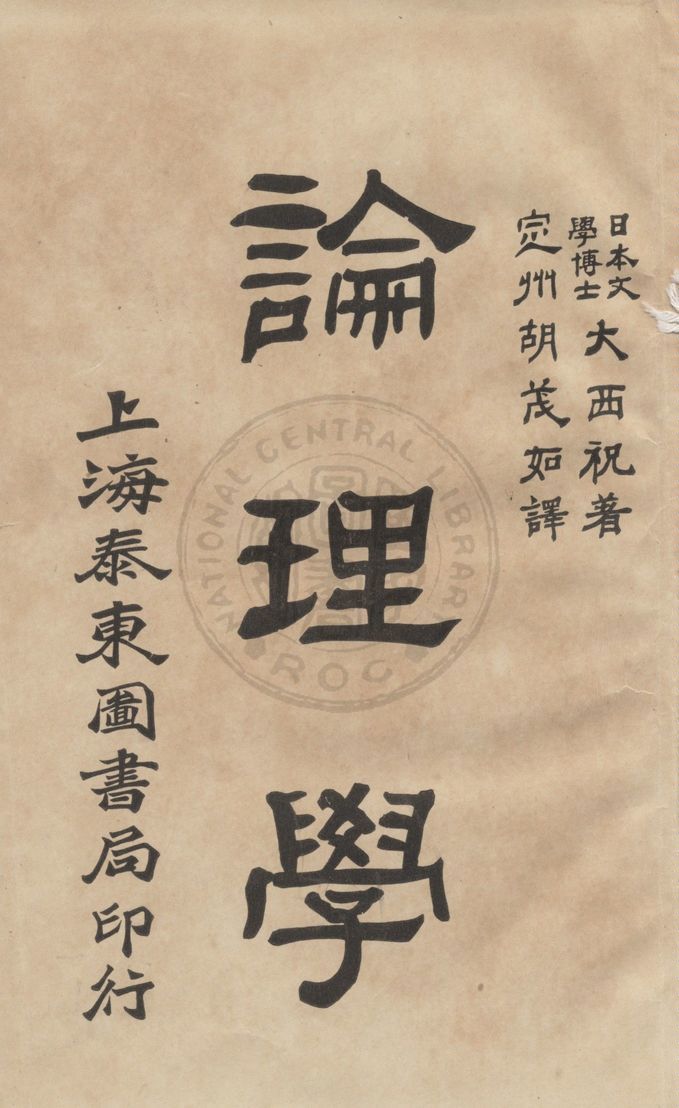 日本文
學博士
大西祝著
定州胡茂如譯
論理學
上海泰東圖書局印行
NATIONAL CENTRAL LIBRARY
ROC